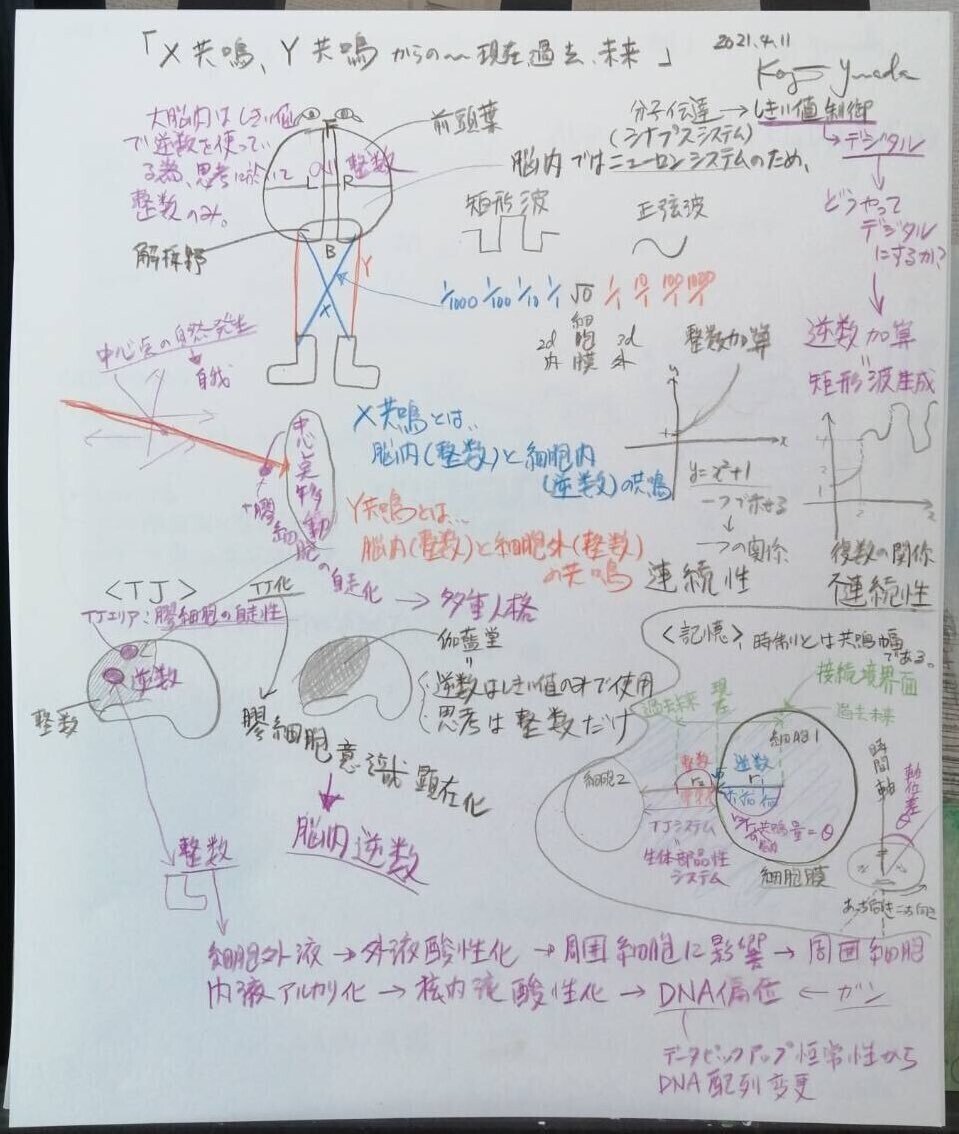 「X共鳴、Y共鳴からの〜現在、過去、未来」
2021.4.11
大脳内はしきい値
で逆数を使ってい
る為、思考に於いて
整数のみ。
前頭葉
整数
L
R
B
X
Y
解探野
分子伝達→しきい値制御
(シナプスシステム)
デジタル
脳内ではニューロンシステムのため、
矩形波
正弦波
どうやって
デジタル
にするか?
1/1000 1/100 1/10 1/1 √0 1/1 10/1 100/1 1000/1
細胞膜
内
外
逆数加算
"
矩形波生成
整数加算
y
x
y=x²+1
一つで示せる
↓
一つの関係
連続性
複数の関係
不連続性
中心点の自然発生
自我
中心点移動
+膠細胞の自走化→多重人格
X共鳴とは..
脳内(整数)と細胞内
(逆数)の共鳴
Y共鳴とは...
脳内(整数)と細胞外(整数)
の共鳴
<TJ>
TJエリア:膠細胞の自走性
TJ化
逆数
整数
伽藍堂
"
逆数はしきい値のみで使用
思考は整数だけ
膠細胞意識顕在化
脳内逆数
<記憶、時制とは共鳴幅
である。
接続境界面
過去未来
現在
過去未来
細胞1
細胞2
整数
逆数
r₂
r₁
TJシステム
"
生体部品性
システム
共鳴量=θ
細胞膜
時間軸
軸位差
θ
あっち向きこっち向き
整数
細胞外液→外液酸性化→周囲細胞に影響→周囲細胞
内液アルカリ化→核内液酸性化→DNA偏位←ガン
データピックアップ恒常性から
DNA配列変更